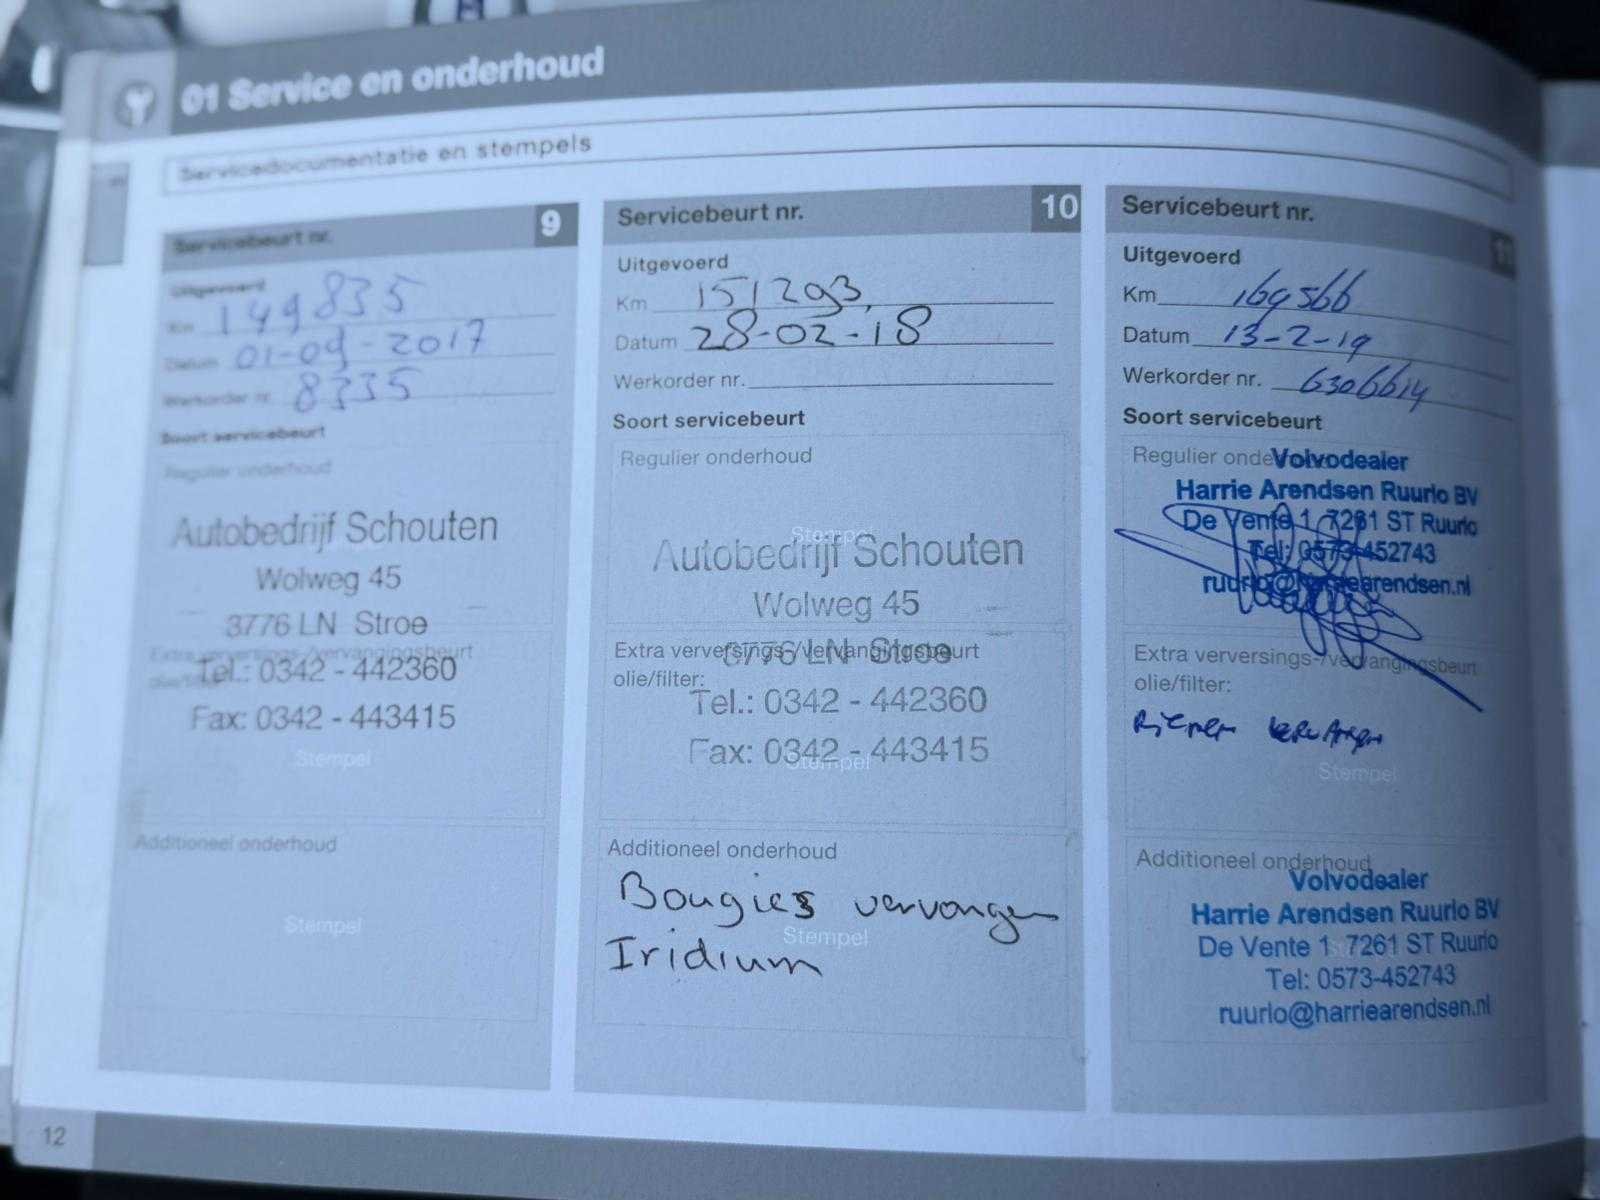 01 Service en onderhoud
Servicedocumentatie en stempels
Servicebeurt nr. 9
Uitgevoerd
Km 149835
Datum 01-09-2017
Werkorder nr. 8335
Soort servicebeurt
Regulier onderhoud
Autobedrijf Schouten
Wolweg 45
3776 LN Stroe
Extra verversings-/vervangingsbeurt
olie/filter:
Tel.: 0342 - 442360
Fax: 0342 - 443415
Stempel
Additioneel onderhoud
Stempel
Servicebeurt nr. 10
Uitgevoerd
Km 151293
Datum 28-02-18
Werkorder nr.
Soort servicebeurt
Regulier onderhoud
Stempel
Autobedrijf Schouten
Wolweg 45
3776 LN Stroe
Extra verversings-/vervangingsbeurt
olie/filter:
Tel.: 0342 - 442360
Fax: 0342 - 443415
Stempel
Additioneel onderhoud
Bougies vervangen
Stempel
Iridium
Servicebeurt nr. 11
Uitgevoerd
Km 169566
Datum 13-2-19
Werkorder nr. 6306614
Soort servicebeurt
Regulier onderhoud
Volvodealer
Harrie Arendsen Ruurlo BV
De Vente 1 7261 ST Ruurlo
Tel: 0573-452743
ruurlo@harriearendsen.nl
Extra verversings-/vervangingsbeurt
olie/filter:
Riemen vervangen
Stempel
Additioneel onderhoud
Volvodealer
Harrie Arendsen Ruurlo BV
De Vente 1 7261 ST Ruurlo
Tel: 0573-452743
ruurlo@harriearendsen.nl
12